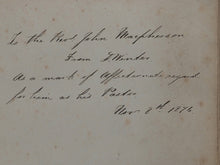 To the Revd John Macpherson
From J Winter
As a mark of Affectionate regard
for him as his Pastor
Nov 8th 1876